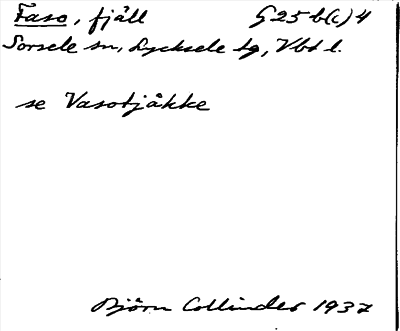 Faso, fjäll § 25 b(c) 4
Sorsele sn, Lycksele tg, Vbt l.
se Vasotjåkke
Björn Collinder 1937